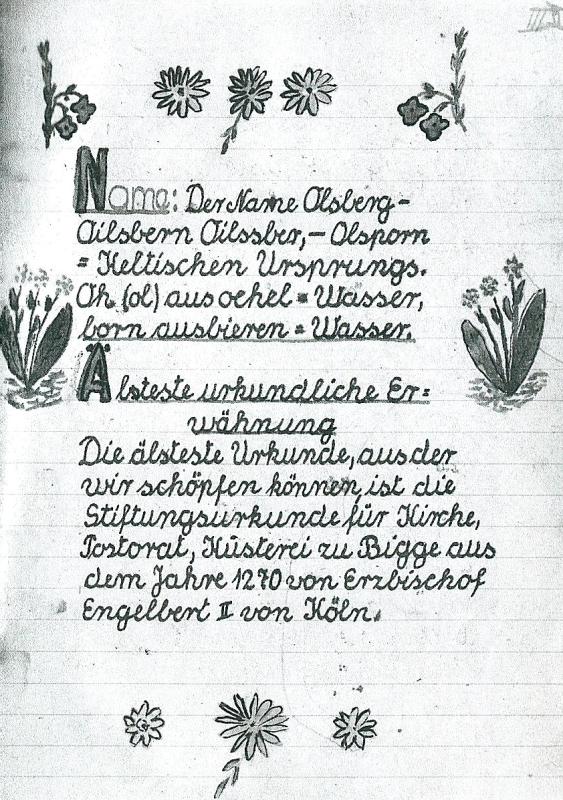 III
Name: Der Name Olsberg-
Oilsbern Oilssber,- Olsporn
= Keltischen Ursprungs.
Oh (ol) aus oehel = Wasser,
born ausbieren = Wasser.
Älsteste urkundliche Er=
wähnung
Die älsteste Urkunde, aus der
wir schöpfen können, ist die
Stiftungsurkunde für Kirche,
Pastorat, Küsterei zu Bigge aus
dem Jahre 1270 von Erzbischof
Engelbert II von Köln.